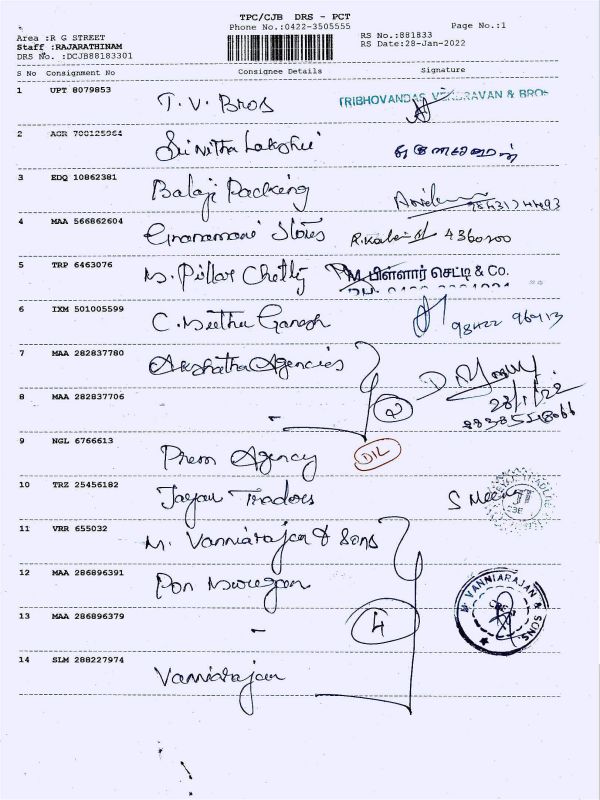 TPC/CJB DRS - PCT
Phone No.:0422-3505555
Page No.:1
Area :R G STREET
RS No.:881833
Staff :RAJARATHINAM
RS Date:28-Jan-2022
DRS No. :DCJB88183301
S No Consignment No Consignee Details Signature
1 UPT 8079853 T. V. Bros TRIBHOVANDAS & BROS
2 AGR 700125964
3 EDQ 10862381 Balaji Packing
4 MAA 566862604 Gnanamani Stores 4360200
5 TRP 6463076 M. Pillar Chetty M. பிள்ளார் செட்டி & Co.
6 IXM 501005599 C. Muthu Ganesh 98422 96913
7 MAA 282837780 Akshatha Agencies
8 MAA 282837706 - 2 28/1/22
9 NGL 6766613 Prem Agency DIL
10 TRZ 25456182 Jayam Traders S Meena
11 VRR 655032 M. Vanniarajan & Sons
12 MAA 286896391 Pon Murugan M VANNIARAJAN & SONS.
13 MAA 286896379 - 4
14 SLM 288227974 Vanniarajan